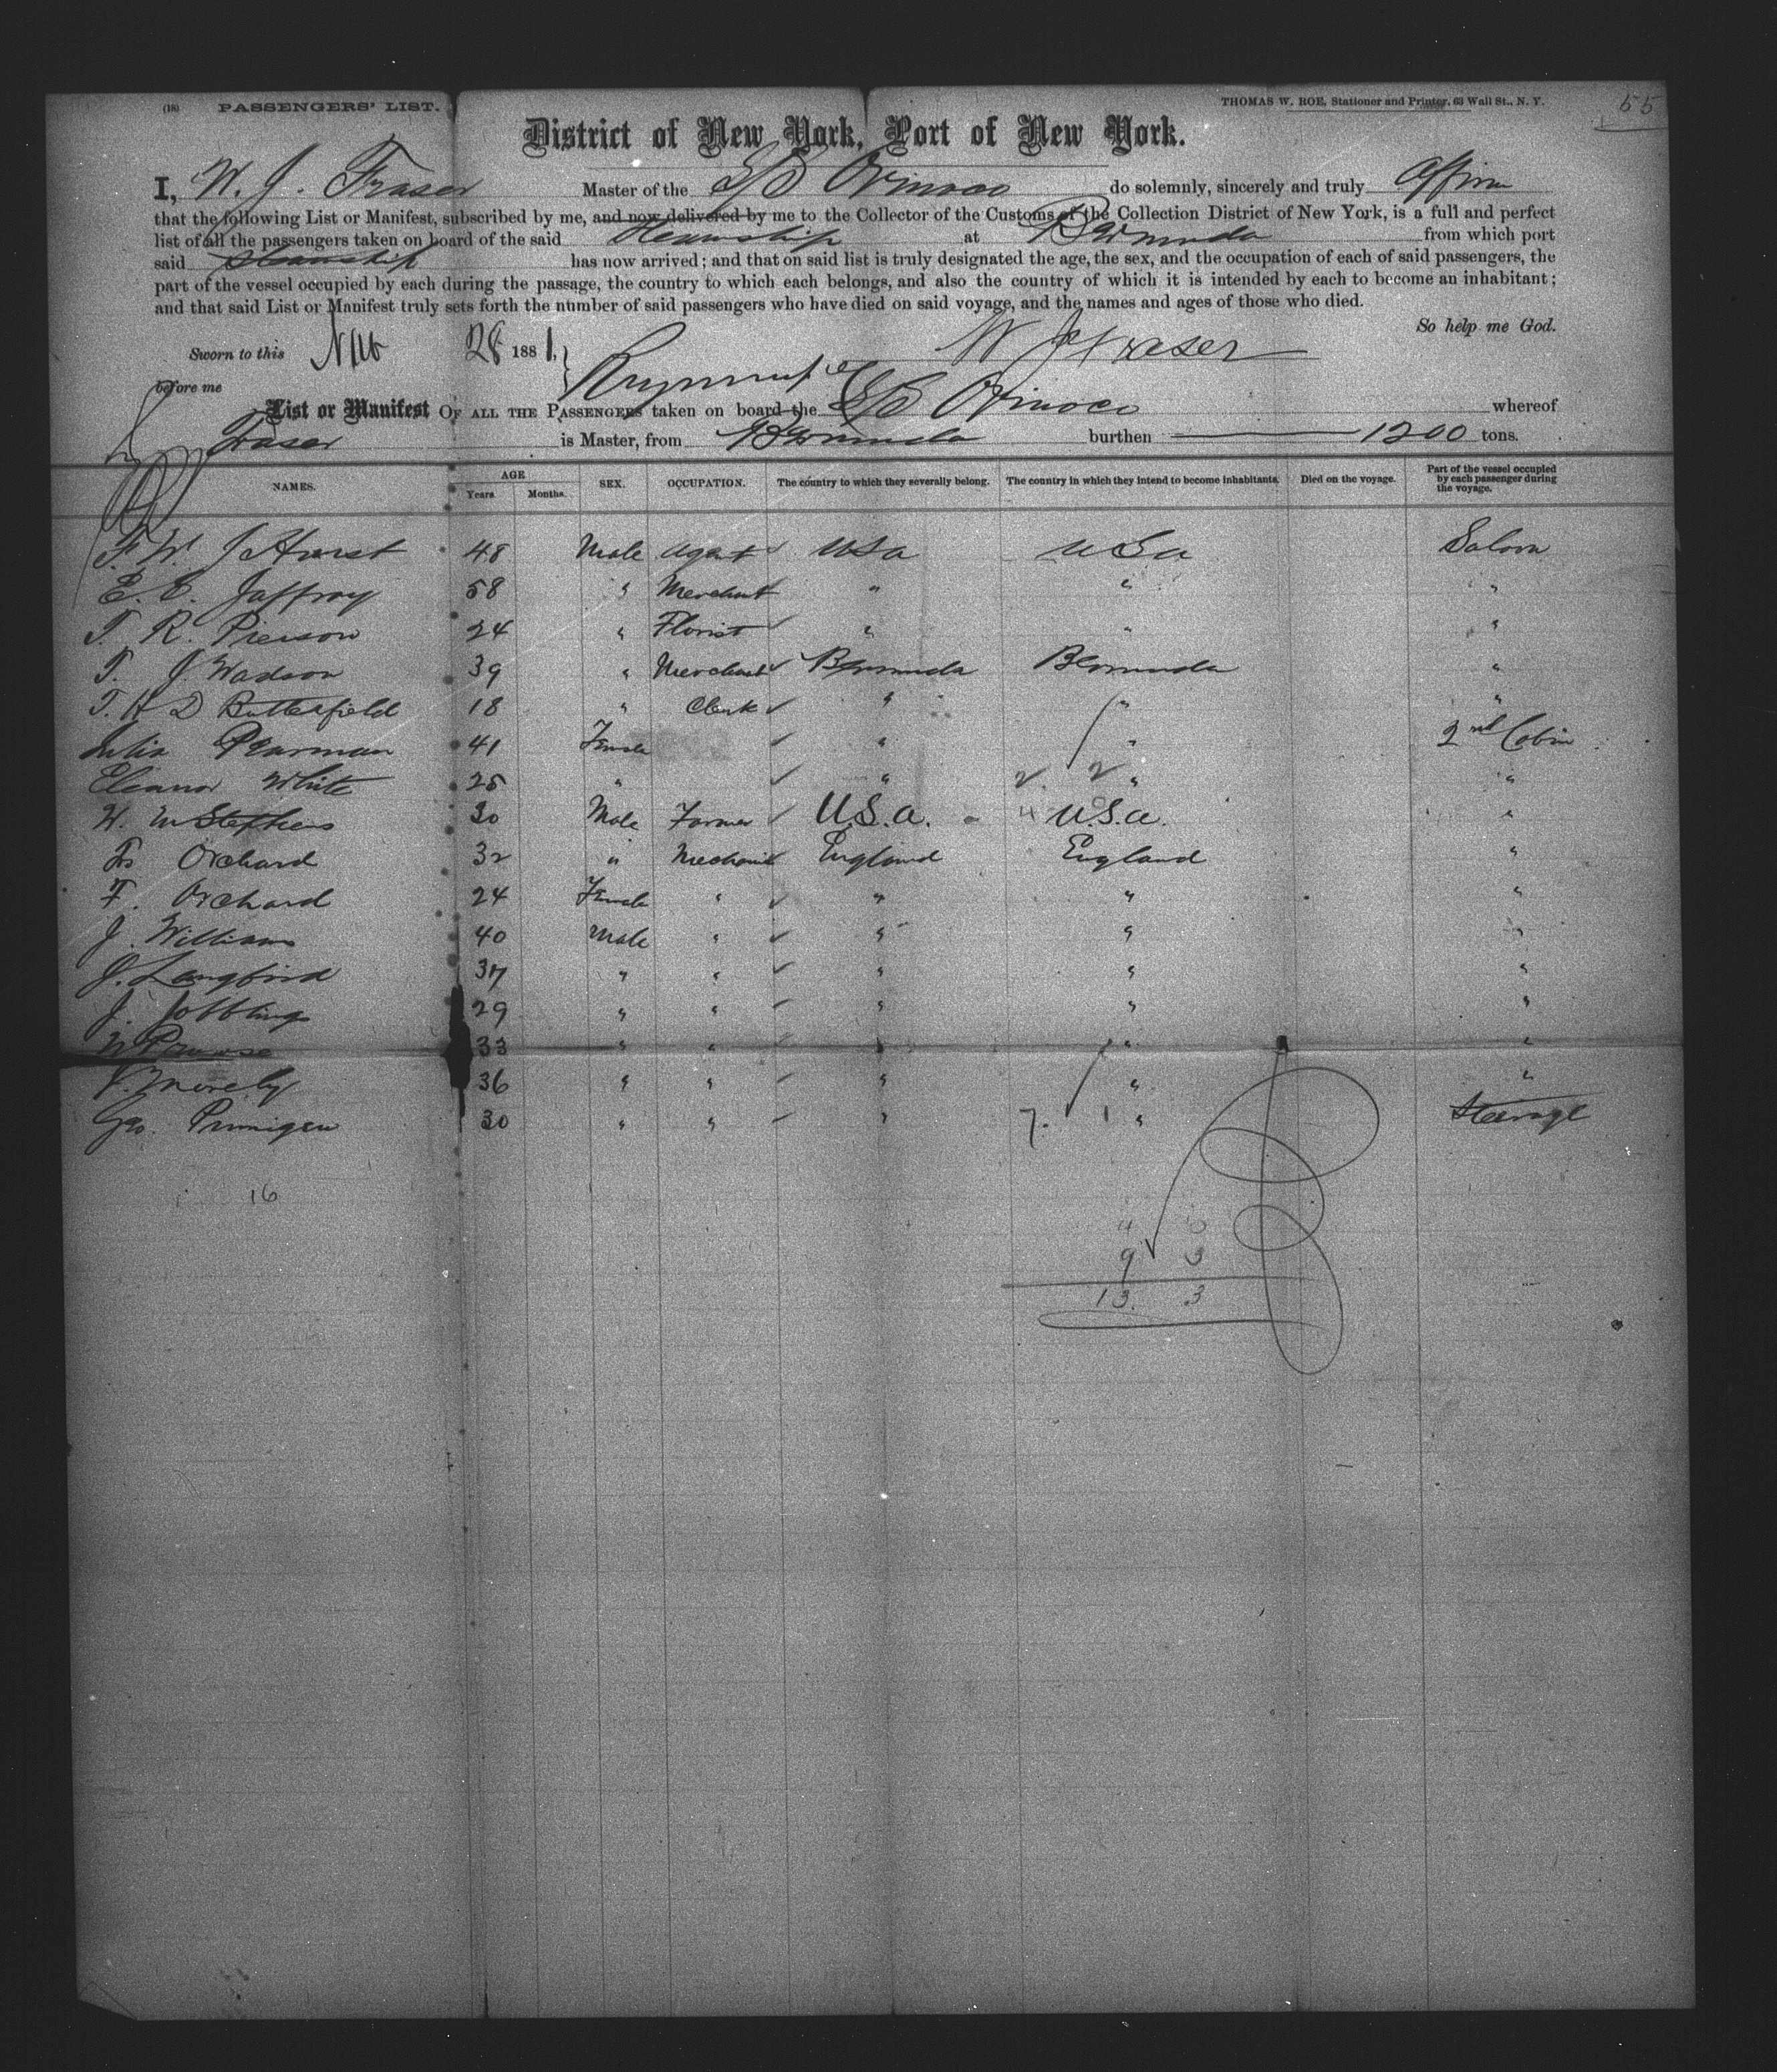 (18) PASSENGERS' LIST. THOMAS W. ROE, Stationer and Printer, 63 Wall St., N. Y. 55
District of New York, Port of New York.
I, W. J. Fraser Master of the S/S Orinoco do solemnly, sincerely and truly affirm
that the following List or Manifest, subscribed by me, and now delivered by me to the Collector of the Customs of the Collection District of New York, is a full and perfect
list of all the passengers taken on board of the said Steamship at Bermuda from which port
said Steamship has now arrived; and that on said list is truly designated the age, the sex, and the occupation of each of said passengers, the
part of the vessel occupied by each during the passage, the country to which each belongs, and also the country of which it is intended by each to become an inhabitant;
and that said List or Manifest truly sets forth the number of said passengers who have died on said voyage, and the names and ages of those who died.
So help me God.
Sworn to this Nov 28 1881, W J Fraser
before me
List or Manifest OF ALL THE PASSENGERS taken on board the S/S Orinoco whereof
Fraser is Master, from Bermuda burthen 1200 tons.
NAMES. AGE Years Months. SEX. OCCUPATION. The country to which they severally belong. The country in which they intend to become inhabitants. Died on the voyage. Part of the vessel occupied by each passenger during the voyage.
F. W. J Hurst 48 Male Agent USA USA Saloon
E. E. Jaffray 58 " Merchant " " "
T. R. Pierson 24 " Florist " " "
T. J. Wadson 39 " Merchant Bermuda Bermuda "
T. H D Butterfield 18 " Clerk " " "
Julia Pearman 41 Female " " 2nd Cabin
Eleanor White 25 " " 2 2 " "
H. M Stephens 30 Male Farmer U.S.A. 4 U.S.A. "
Orchard 32 " Mechanic England England "
F. Orchard 24 Female " " " "
J. Williams 40 Male " " " "
J. Langbird 37 " " " " "
J. Jobblings 29 " " " " "
33 " " " " "
Morely 36 " " " " "
Geo. Primigen 30 " " " 7. 1 " Steerage
16
4 0
9 3
13. 3